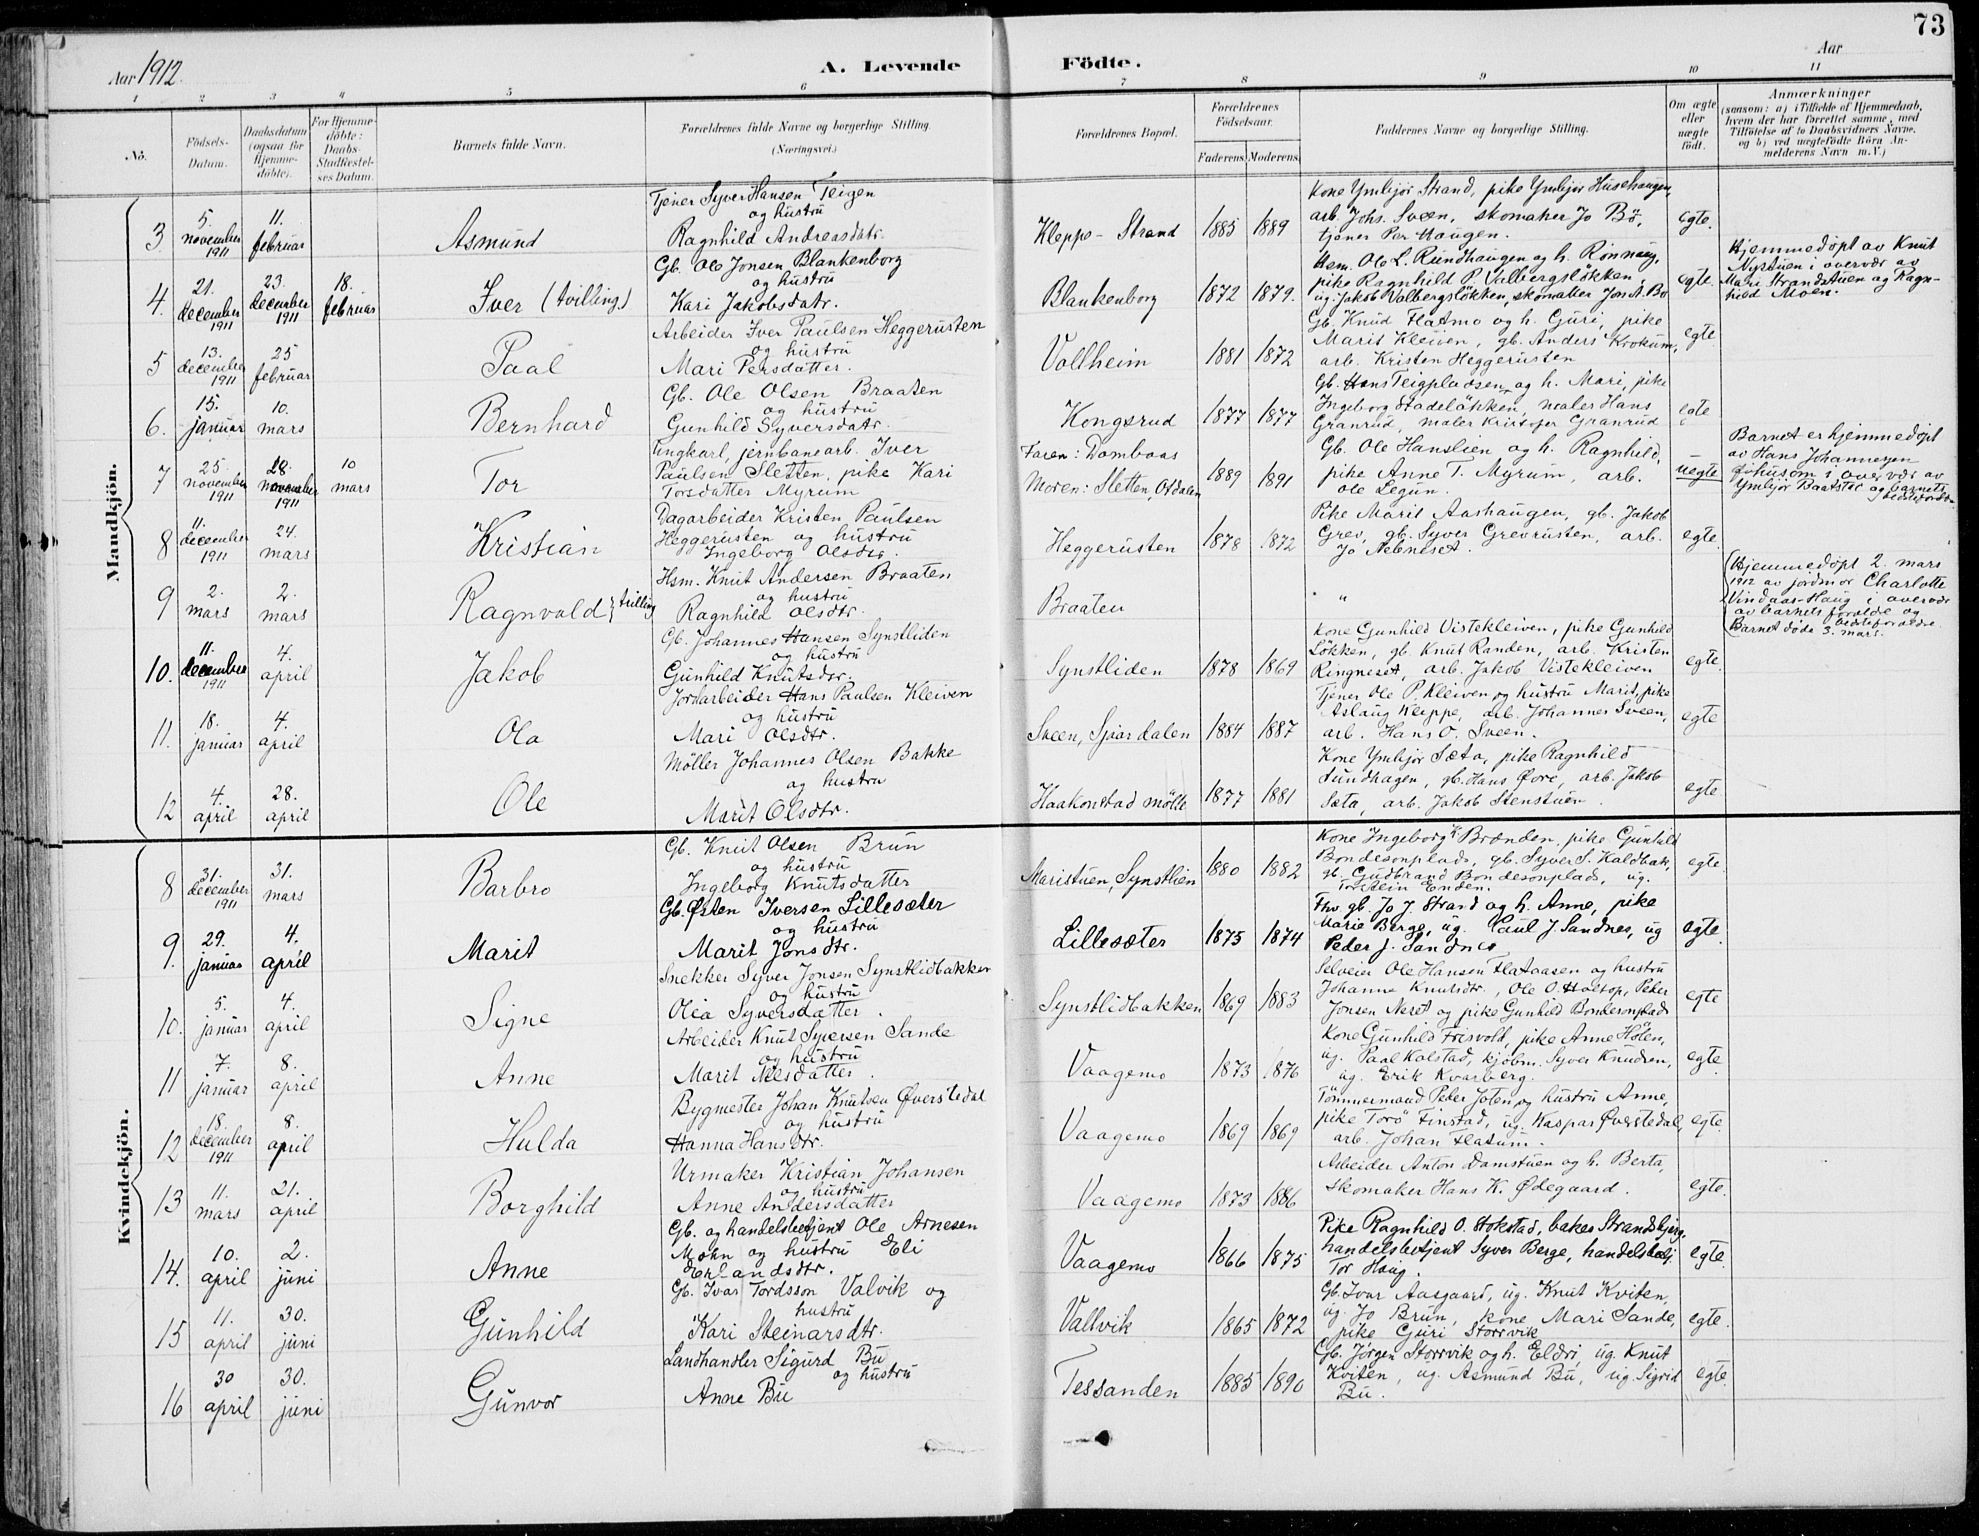 73
Aar 1912.
A. Levende Födte.
Aar
1 2 3 4 5 6 7 8 9 10 11
No.
Födsels-Datum.
Daabsdatum (ogsaa for Hjemme-döbte).
For Hjemme-döbte: Daabs-Stadfestel-ses Datum.
Barnets fulde Navn.
Forældrenes fulde Navne og borgerlige Stilling. (Næringsvei.)
Forældrenes Bopæl.
Forældrenes Födselsaar.
Faderens. Moderens.
Faddernes Navne og borgerlige Stilling.
Om ægte eller uægte födt.
Anmærkninger
(saasom: a) i Tilfælde af Hjemmedaab, hvem der har forrettet samme, med Tilföielse af to Daabsvidners Navne, og b) ved uægtefödte Börn An-melderens Navn m. V.)
Mandkjön.
3 5 november 1911 11. februar Asmund Tjener Syver Hansen Teigen og hustru Ragnhild Andreasdatr. Kleppe - Strand 1885 1889 Kone Ymbjør Strand, pike Ymbjør Husehaugen, arb. Johs. Sveen, skomaker Jo Bö, tjener Per Haugen. egte.
4. 21. december 1911 23. december 1911 18. februar Iver (tvilling) Gb. Ole Jonsen Blankenborg og hustru Kari Jakobsdatr. Blankenborg 1872 1879. Hsm. Ole L. Rundhaugen og h. Rönnaug, pike Ragnhild P. Valbergsløkken, ug. Jakob Valbergsløkken, skomaker Jon A. Bö egte. Hjemmedøpt av Knut Nystuen i overvær av Mari Strandstuen og Ragn-hild Moen.
5 13. december 1911 25 februar Paal Arbeider Iver Paulsen Heggerusten og hustru Mari Persdatter. Vollheim 1881 1872 Gb. Knud Flatmo og h. Guri, pike Marit Kleiven, gb. Anders Krokum, arb. Kristen Heggerusten egte.
6. 15. januar 10. mars Bernhard Gb. Ole Olsen Braaten og hustru Gunhild Syversdatr. Kongsrud 1877 1877 Gb. Hans Teigpladsen og h. Mari, pike Ingeborg Stadeløkken, maler Hans Granrud, maler Kristofer Granrud egte
7 25. november 1911 28. november 1911 10 mars Tor Ungkarl, jernbanearb. Iver Paulsen Sletten, pike Kari Torsdatter Myrum Faren: Dombaas Moren: Sletten, Otdalen 1889 1891 Gb. Ole Hanslien og h. Ragnhild, pike Anne T. Myrum, arb. Ole Legun. uegte Barnet er hjemmedøpt av Hans Johannesen i overvær av Ymbjør og barnets
8 11. december 1911 24. mars Kristian Dagarbeider Kristen Paulsen Heggerusten og hustru Ingeborg Olsdtr. Heggerusten 1878 1872 Pike Marit Aashaugen, gb. Jakob Grev, gb. Syver Grevrusten, arb. Jo egte.
9 2. mars 2. mars Ragnvald } trilling Hsm. Knut Andersen Braaten og hustru Ragnhild Olsdtr. Braaten " Hjemmedøpt 2. mars 1912 av jordmor Charlotte Vindaas-Haug i overvær av barnets forældre og bedsteforældre. Barnet døde 3. mars.
10. 11. december 1911 4. april Jakob Gb. Johannes Hansen Synstliden og hustru Gunhild Knutsdtr. Synstliden 1878 1869 Kone Gunhild Vistekleiven, pike Gunhild Løkken, gb. Knut Randen, arb. Kristen Ringneset, arb. Jakob Vistekleiven egte.
11. 18. januar 4. april Ola Jordarbeider Hans Paulsen Kleiven og hustru Mari Olsdtr. Sveen, Sjaardalen 1884 1887 Tjener Ole P. Kleiven og hustru Marit, pike Aslaug Kleppe, arb. Johannes Sveen, arb. Hans O. Sveen. egte
12 4. april 28. april Ole Möller Johannes Olsen Bakke og hustru Marit Olsdtr. Haakonstad mölle 1877 1881 Kone Ymbjør Sæta, pike Ragnhild Sundhagen, gb. Hans Øvre, arb. Jakob Sæta, arb. Jakob Stenstuen. egte
Kvindekjön.
8 31. december 1911 31. mars Barbro Gb. Knut Olsen Brun og hustru Ingeborg Knutsdatter Maristuen, Synstlien 1880 1882 Kone Ingeborg K. Brænden, pike Gunhild Bondesonplads, gb. Syver S. Kaldbak, gb. Gudbrand Bondesonplads, ug. Torstein Enden. egte.
9. 29. januar 4. april Marit Gb. Østen Iversen Lillesæter og hustru Marit Jonsdtr. Lillesæter 1875 1874 Fhv. gb. Jo J. Strand og h. Anne, pike Marie Berge, ug. Paul J. Sandnes, ug Peder J. Sandnes egte.
10. 5. januar 4. april Signe Snekker Syver Jonsen Synstlidbakken og hustru Olea Syversdatter. Synstlidbakken 1869 1883 Selveier Ole Hansen Flataasen og hustru Johanne Knutsdtr., Ole O. Holtop, Peter Jonsen Neset og pike Gunhild Bondesonplads egte
11 7. januar 8. april Anne Arbeider Knut Syversen Sande og hustru Marit Nilsdatter. Vaagemo 1873 1876 Kone Gunhild Frisvold, pike Anne Hølen, ug. Paal Kalstad, kjøbm. Syver Knudsen, ug. Erik Kvarberg. egte.
12 18. december 1911 8. april Hulda Bygmester Johan Knutsen Øverstedal og hustru Hanna Hansdtr. Vaagemo 1869 1869 Tömmermand Peder Joten og hustru Anne, pike Torö Finstad, ug. Kaspar Øverstedal, arb. Johan Flatum. egte.
13 11. mars 21. april Borghild Urmaker Kristian Johansen og hustru Anne Andersdatter Vaagemo 1873 1886 Arbeider Anton Damstuen og h. Berta, skomaker Hans K. Ødegaard. egte.
14. 10. april 2. juni Anne Gb. og handelsbetjent Ole Arnesen Mohn og hustru Eli Erlandsdtr. Vaagemo 1866 1875 Pike Ragnhild O. Stokstad, baker Strandbjerg, handelsbetjent Syver Berge, handelsbetj Tor Haug. egte.
15 11. april 30. juni Gunhild Gb. Ivar Tordsson Valvik og hustru Kari Steinarsdtr. Vallvik 1865 1872 Gb. Ivar Aasgaard, ug. Knut Kviten, ug. Jo Brun, kone Mari Sande, pike Guri Storrvik egte.
16 30 april 30. juni Gunvor Landhandler Sigurd Bu og hustru Anne Bu Tessanden 1885 1890 Gb. Jørgen Storrvik og h. Eldri, ug. Knut Kviten, ug. Asmund Bu, ug. Sigrid Bu. egte.